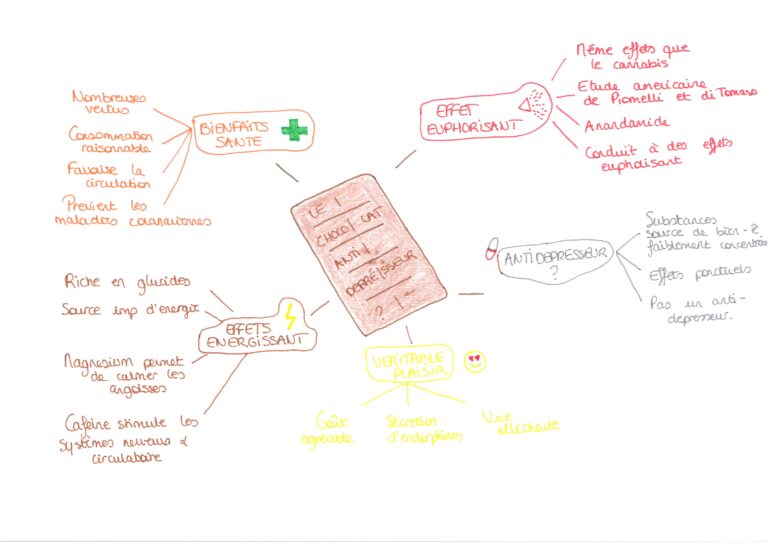 LE
CHOCOLAT
ANTI
DEPRESSEUR
?
BIENFAITS
SANTE
Nombreuses
vertus
Consommation
raisonnable
Favorise la
circulation
Prévient les
maladies coronariennes
EFFET
EUPHORISANT
Même effets que
le cannabis
Etude américaine
de Piomelli et di Tomaso
Anandamide
Conduit à des effets
euphorisant
ANTIDEPRESSEUR
?
Substances
source de bien-ê
faiblement concentrées
Effets ponctuels
Pas un anti-
depresseur.
VERITABLE
PLAISIR
Goût
agréable
Sécretion
d'endorphines
Vue
alléchante
EFFETS
ENERGISSANT
Riche en glucides
Source imp d'energie
Magnesium permet
de calmer les
angoisses
Caféine stimule les
systèmes nerveux &
circulatoire